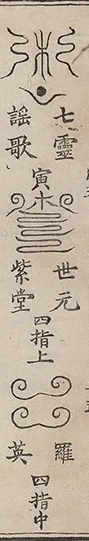 七靈
謠歌
寅木
世元
紫堂
四指上
羅
英
四指中